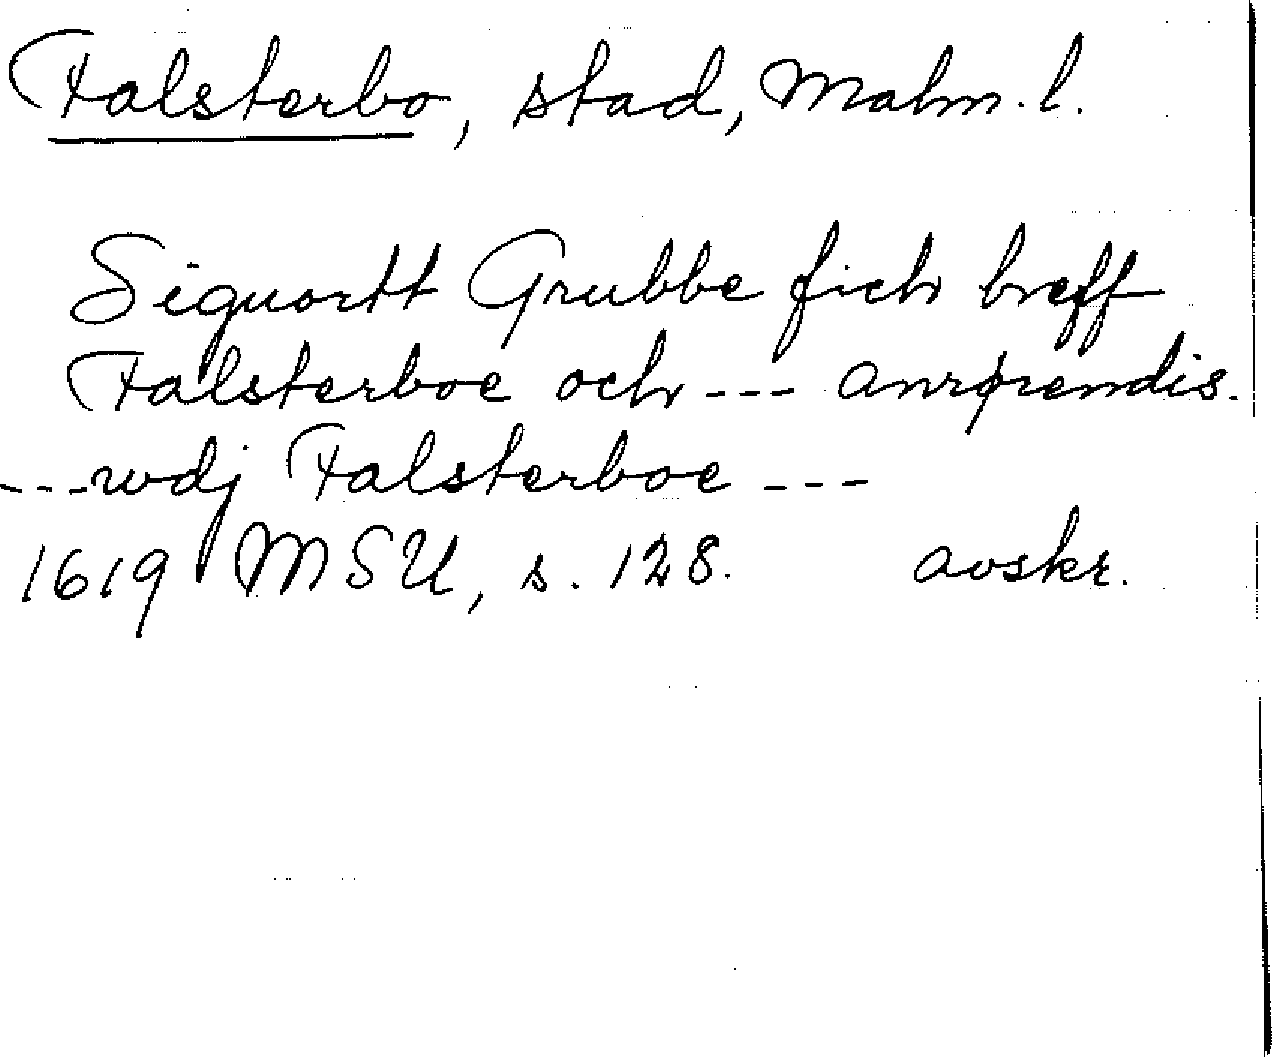 Falsterbo, stad, Malm. l.
Siguortt Grubbe fich breff
Falsterboe och --- anrørendis.
---wdj Falsterboe ---
1619 MSU, s. 128. avskr.